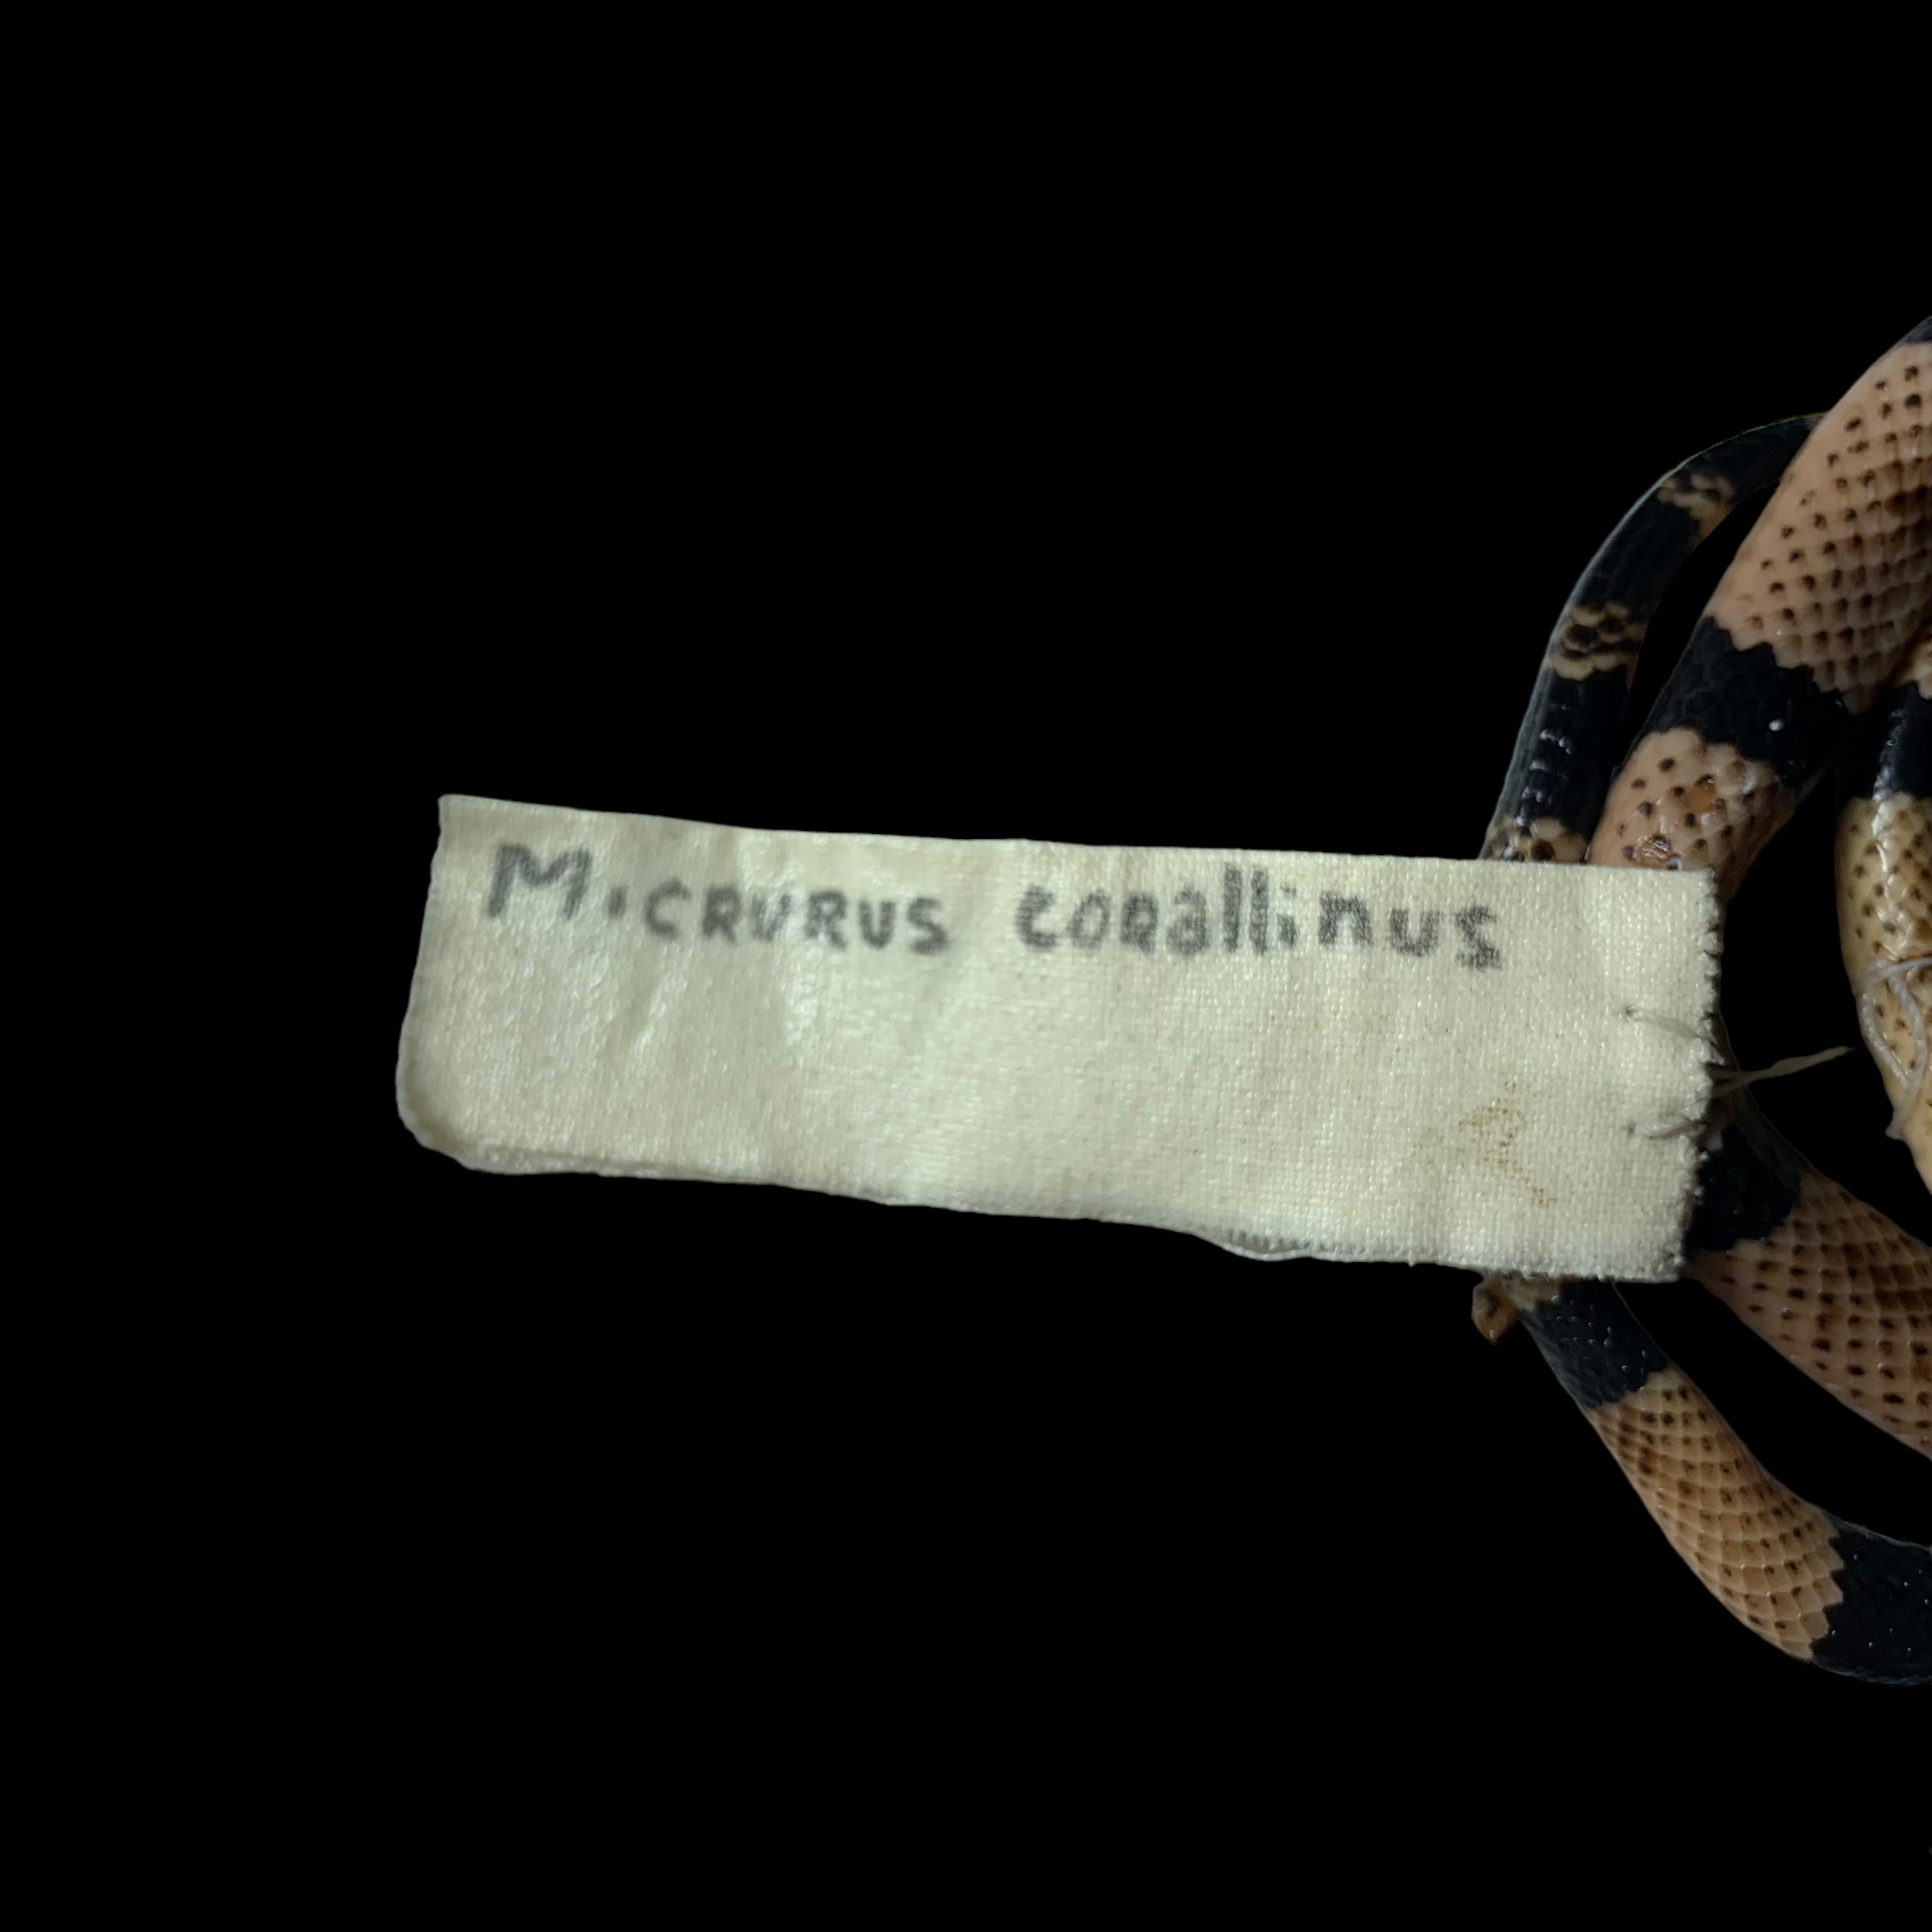 Micrurus corallinus